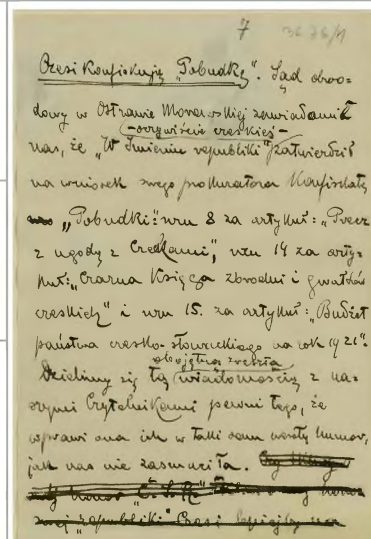 7 3626/1
Czesi konfiskują "Pobudkę". Sąd obwo-
dowy w Ostrawie Morawskiej zawiadamił
- oczywiście czeskiej -
nas, że "W imieniu republiki" zatwierdził
na wniosek swego prokuratora konfiskatę
"Pobudki": nru 8 za artykuł: "Precz
z ugodą z Czechami", nru 14 za arty-
kuł: "Czarna Księga zbrodni i gwałtów
czeskich" i nru 15. za artykuł: "Budżet
państwa czesko-słowackiego na rok 1921".
obojętną zresztą
Dzielimy się tą wiadomością z na-
szymi Czytelnikami pewni tego, że
wprawi ona ich w taki sam wesoły humor,
jak nas nie zasmuciła.
"republiki" Czesi